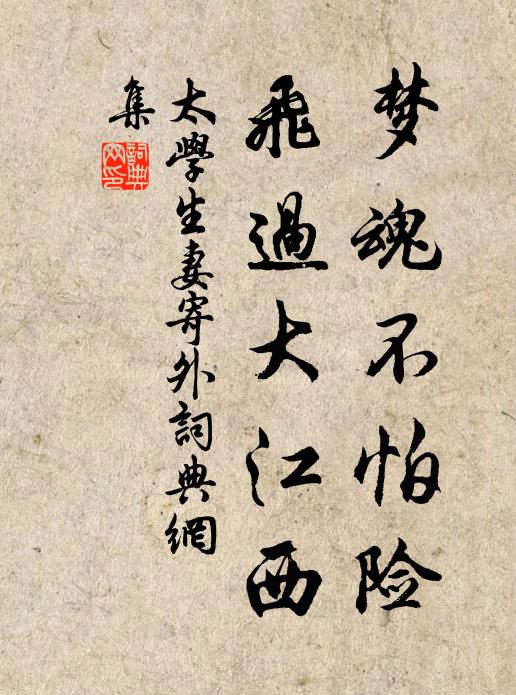 梦魂不怕险
飛過大江西
太學生妻寄外詞典網
集
詞典
网印